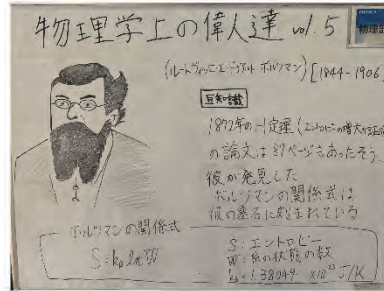 物理学上の偉人達 vol.5
物理部
(ルートヴィッヒ・エードゥアルト ボルツマン) [1844-1906]
豆知識
1872年のH定理(エントロピーの増大の証明
の論文は87ページもあったそう。
彼が発見した
ボルツマンの関係式は
彼の墓石に刻まれている
ボルツマンの関係式
S=k_B ln W
S:エントロピー
W:系の状態の数
k_B=1.38049 ×10^-23 J/K